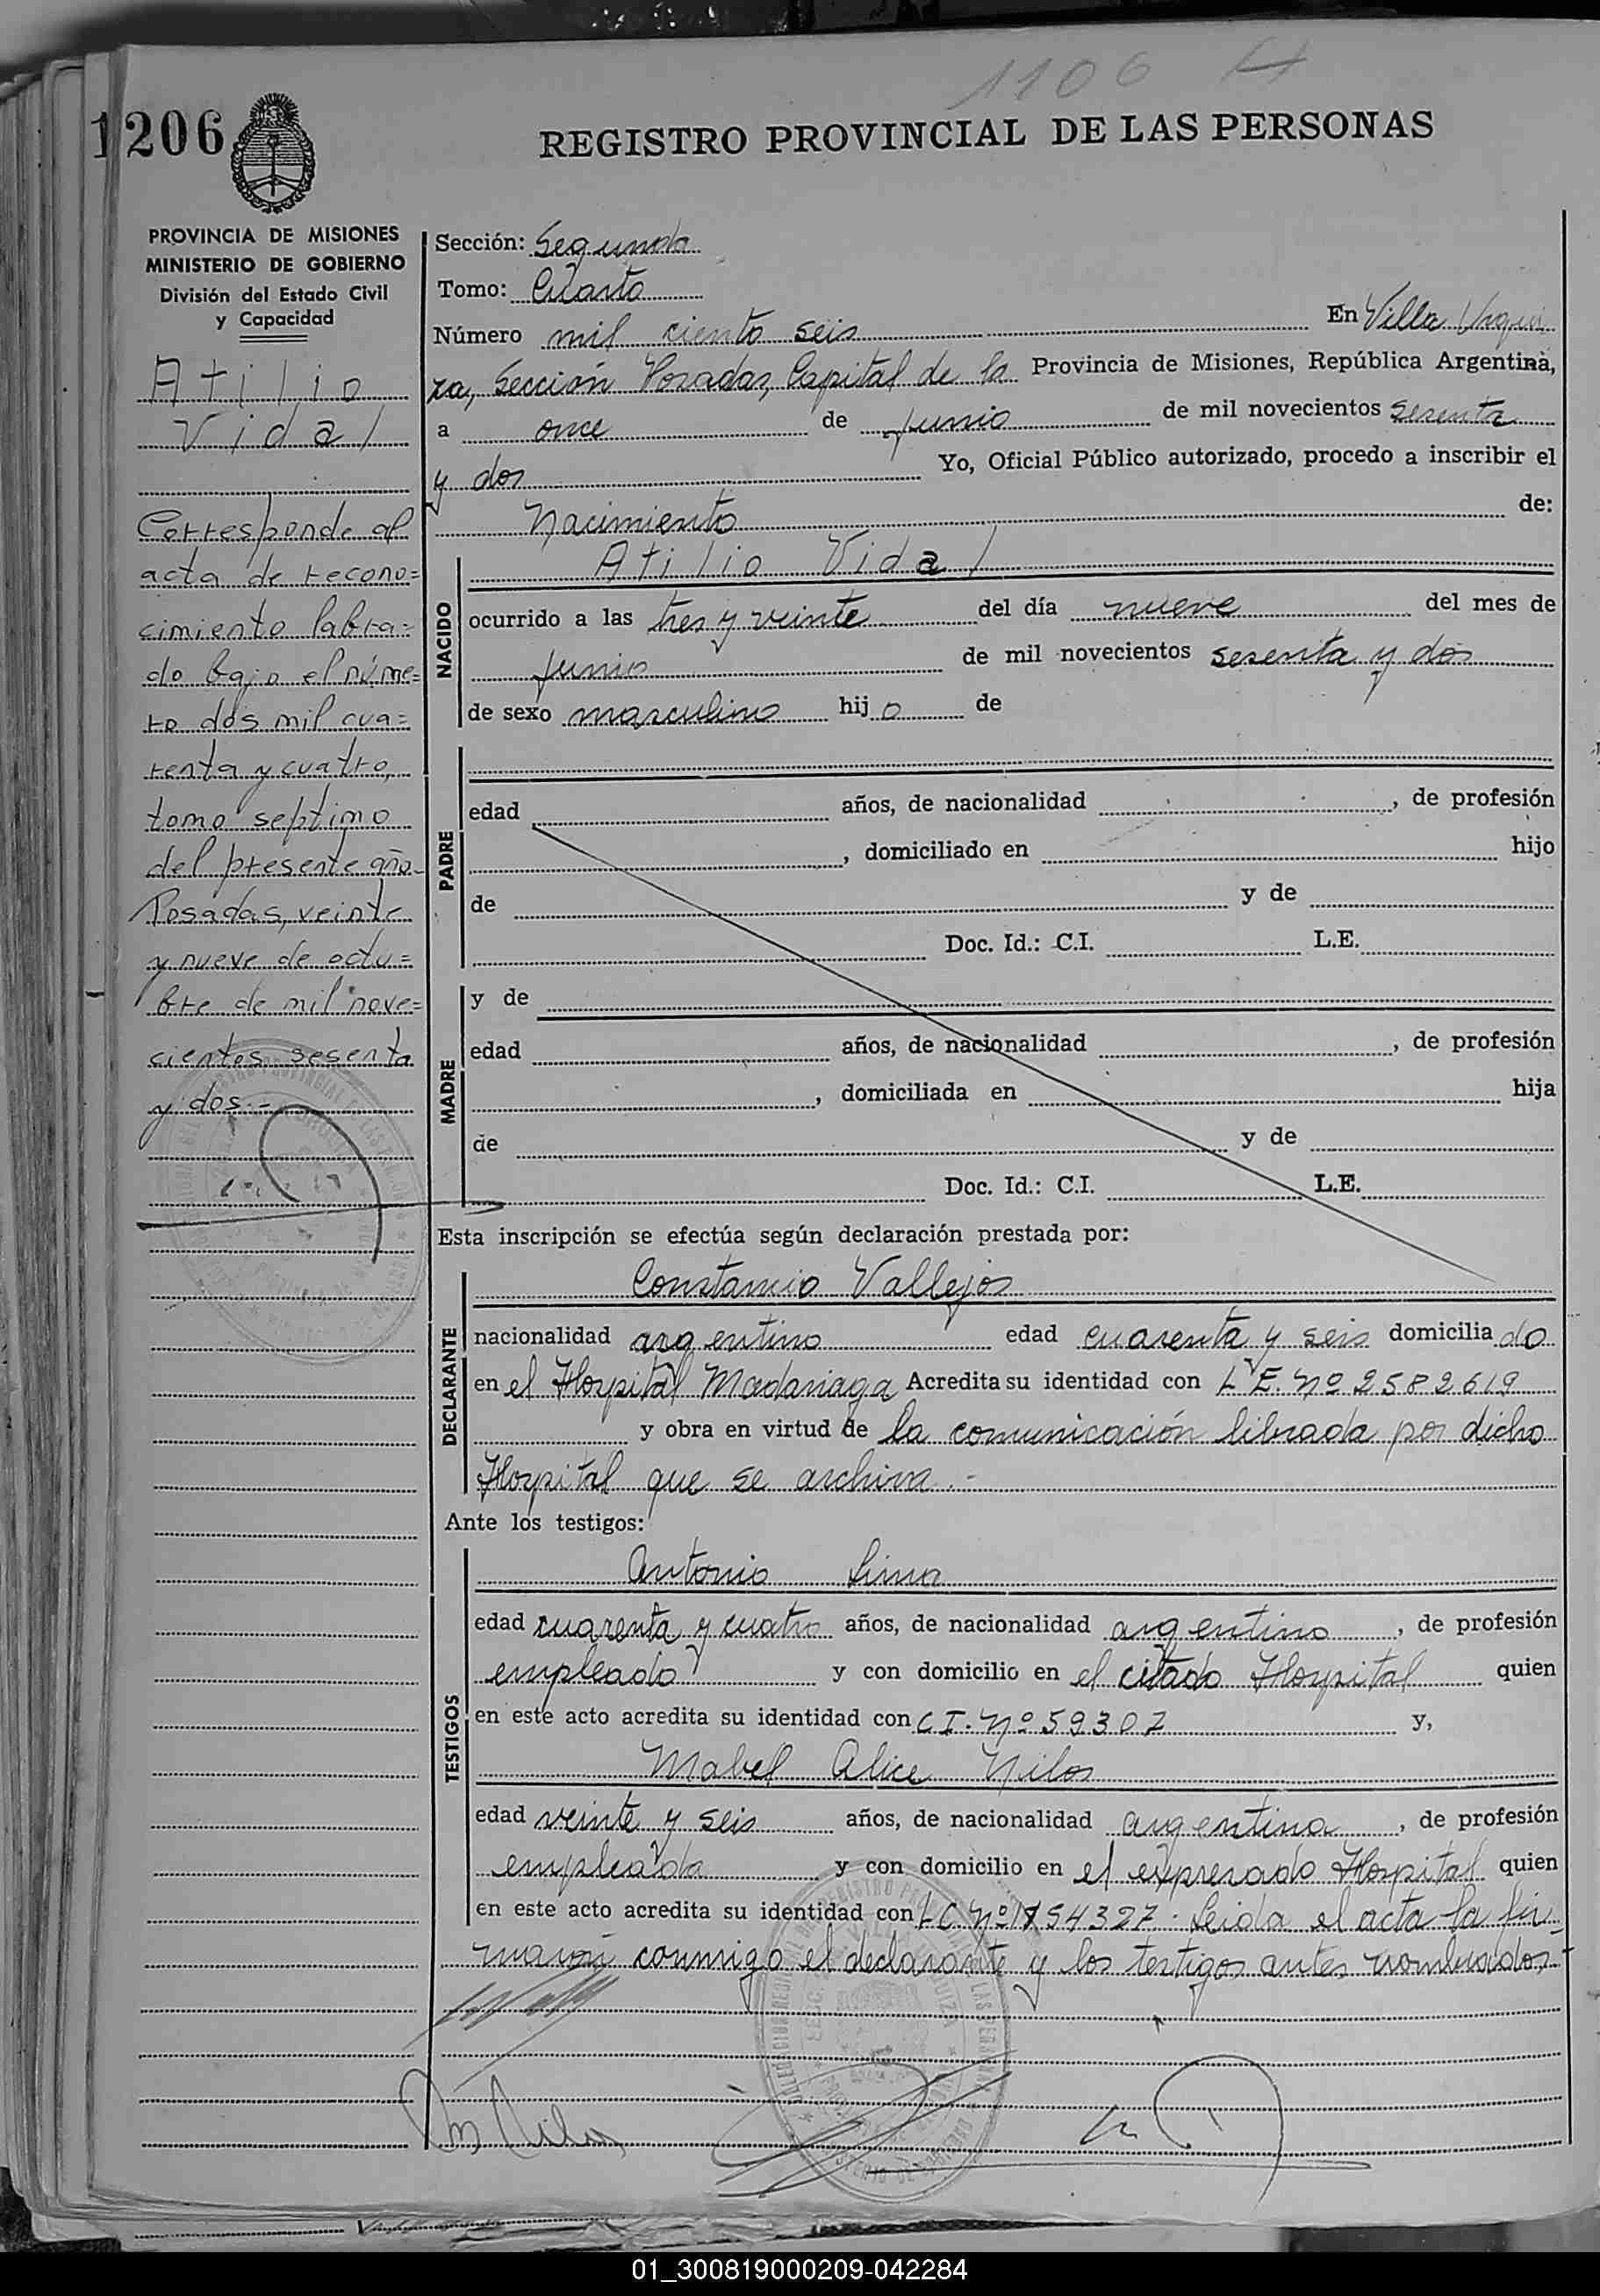 1106 H
1206
REGISTRO PROVINCIAL DE LAS PERSONAS
PROVINCIA DE MISIONES
MINISTERIO DE GOBIERNO
División del Estado Civil
y Capacidad
Atilio
Vidal
Corresponde al
acta de recono=
cimiento labra=
do bajo el núme=
ro dos mil cua=
renta y cuatro,
tomo septimo
del presente año.
Posadas, veinte
y nueve de octu=
bre de mil nove=
cientos sesenta
y dos.-
Sección: Segunda
Tomo: Cuarto
Número mil ciento seis En Villa Urqui
za, Sección Posadas, Capital de la Provincia de Misiones, República Argentina,
a once de junio de mil novecientos sesenta
y dos Yo, Oficial Público autorizado, procedo a inscribir el
Nacimiento de:
NACIDO
Atilio Vidal
ocurrido a las tres y veinte del día nueve del mes de
junio de mil novecientos sesenta y dos
de sexo masculino hijo de
PADRE
edad años, de nacionalidad , de profesión
, domiciliado en hijo
de y de
Doc. Id.: C.I. L.E.
MADRE
y de
edad años, de nacionalidad , de profesión
, domiciliada en hija
de y de
Doc. Id.: C.I. L.E.
Esta inscripción se efectúa según declaración prestada por:
DECLARANTE
Constancio Vallejos
nacionalidad argentino edad cuarenta y seis domiciliado
en el Hospital Madariaga Acredita su identidad con L.E. Nº 2582619
y obra en virtud de la comunicación librada por dicho
Hospital que se archiva.-
Ante los testigos:
TESTIGOS
Antonio Lima
edad cuarenta y cuatro años, de nacionalidad argentino, de profesión
empleado y con domicilio en el citado Hospital quien
en este acto acredita su identidad con C.I. Nº 59307 y,
Mabel Alice Nilos
edad veinte y seis años, de nacionalidad argentina, de profesión
empleada y con domicilio en el expresado Hospital quien
en este acto acredita su identidad con L.C. Nº 1754327. Leida el acta la fir
maron conmigo el declarante y los testigos antes nombrados.-
01_300819000209-042284